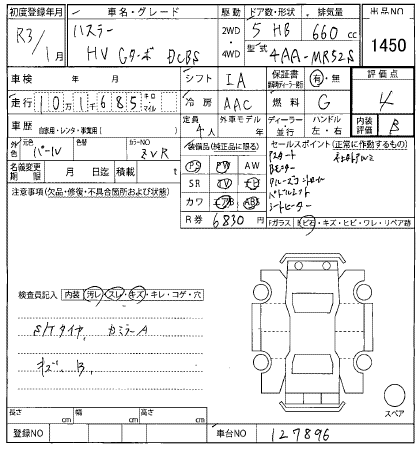 初度登録年月 車名・グレード 駆動 ドア数・形状 排気量 出品NO
R3/1月 ハスラー HV Gターボ DCBS 2WD 4WD 5 HB 660 cc 1450
型式 4AA-MR52S
車検 年 月 シフト IA 保証書 有・無 評価点
走行 101685 キロ マイル 冷房 AAC 燃料 G 4
車歴 自家用・レンタ・事業用( ) 定員 4人 外車モデル 年 ディーラー 並行 ハンドル 左・右 内装評価 B
外色 元色 パール 色替 カラーNO ZVR
装備品(純正品に限る) セールスポイント(正常に作動するもの)
名義変更期限 月 日迄 積載 t PS PW AW
注意事項(欠品・修復・不具合箇所および状態) SR TV
カワ エアB ABS
シートヒーター
R券 6830円 Fガラス 飛石・キズ・ヒビ・ワレ・リペア跡
検査員記入 内装 汚レ・スレ・キズ・キレ・コゲ・穴
S/Hタイヤ カミラーA
キズ、B
スペア
長さ cm 幅 cm 高さ cm
登録NO 車台NO 127896